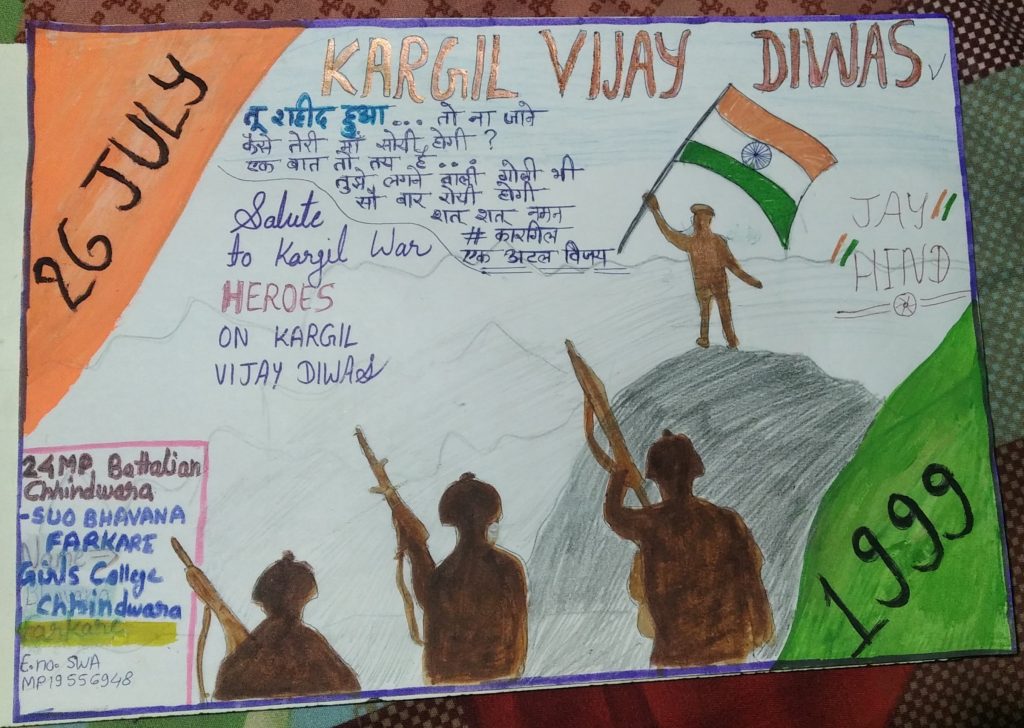 KARGIL VIJAY DIWAS
26 JULY
तू शहीद हुआ... तो ना जाने
कैसे तेरी माँ सोयी होगी ?
एक बात तो तय है...
तुझे लगने वाली गोली भी
सौ बार रोयी होगी
शत् शत् नमन
# कारगिल
एक अटल विजय
Salute
to Kargil War
HEROES
ON KARGIL
VIJAY DIWAS
JAY
HIND
24MP, Battalian
Chhindwara
-SUO BHAVANA
FARKARE
Girls College
Chhindwara
Farkare
E.no. SWA
MP19556948
1999